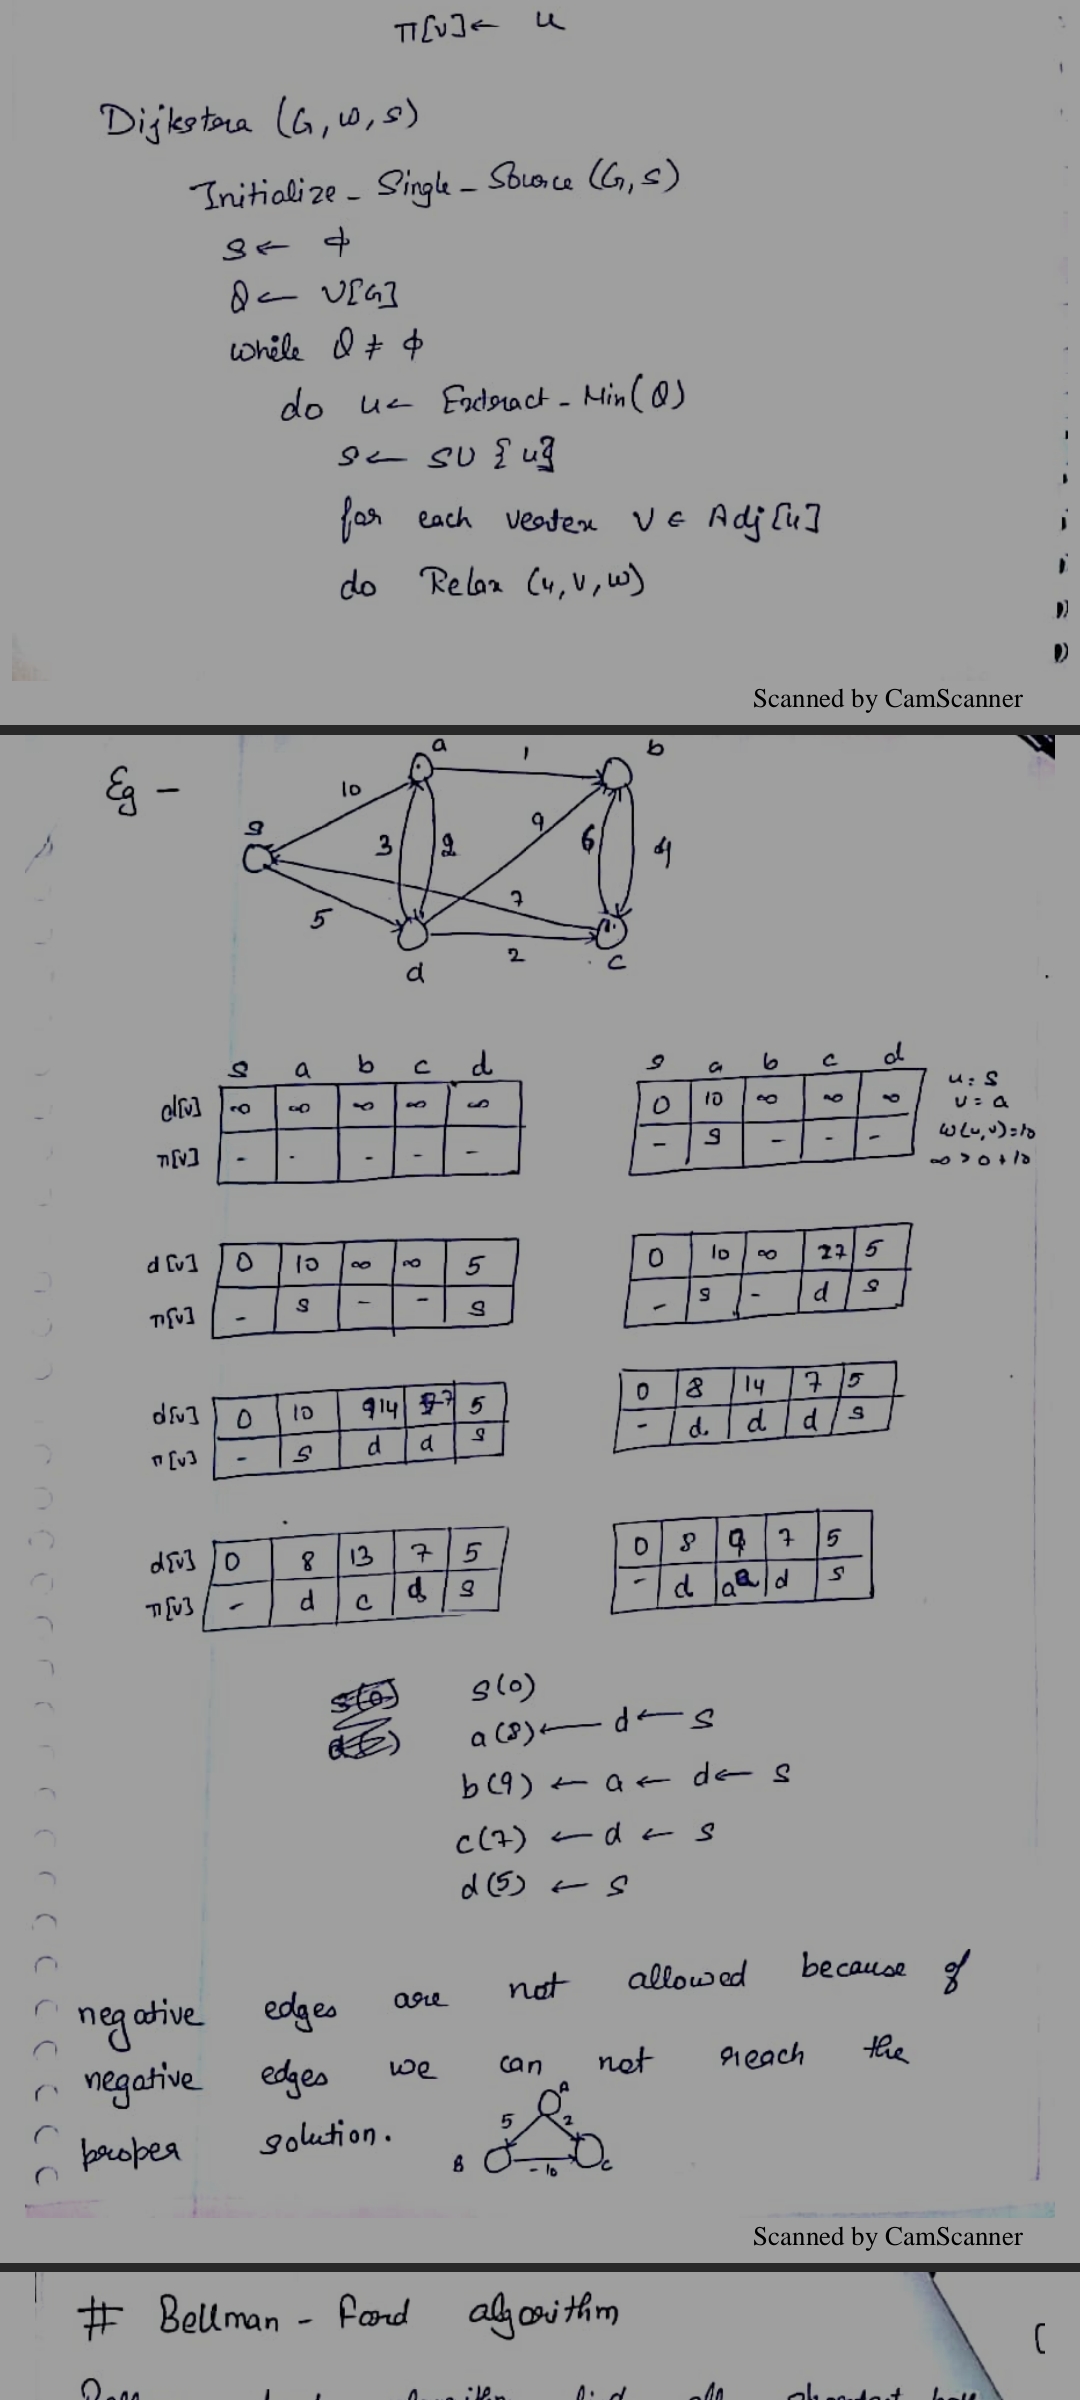 π[v]← u
Dijkstra (G, w, s)
Initialize - Single - Source (G, s)
S ← ϕ
Q ← V[G]
while Q ≠ ϕ
do u ← Extract - Min(Q)
S ← S U {u}
for each vertex V ∈ Adj[u]
do Relax (u, v, w)
Scanned by CamScanner
Eg -
a 1 b
10
s 3 2 9 6 4
7
5
d 2 c
s a b c d
d[v] ∞ ∞ ∞ ∞ ∞
π[v] - - - - -
s a b c d
0 10 ∞ ∞ ∞
- s - - -
u = s
v = a
w(u,v)=10
∞ > 0 + 10
d[v] 0 10 ∞ ∞ 5
π[v] - s - - s
0 10 ∞ 7 5
- s - d s
d[v] 0 10 14 7 5
π[v] - s d d s
0 8 14 7 5
- d d d s
d[v] 0 8 13 7 5
π[v] - d c d s
0 8 9 7 5
- d a d s
s(0)
a(8) ← d ← s
b(9) ← a ← d ← s
c(7) ← d ← s
d(5) ← s
negative edges are not allowed because of
negative edges we can not reach the
proper solution.
A
5 2
B -10 C
Scanned by CamScanner
# Bellman - Ford algorithm